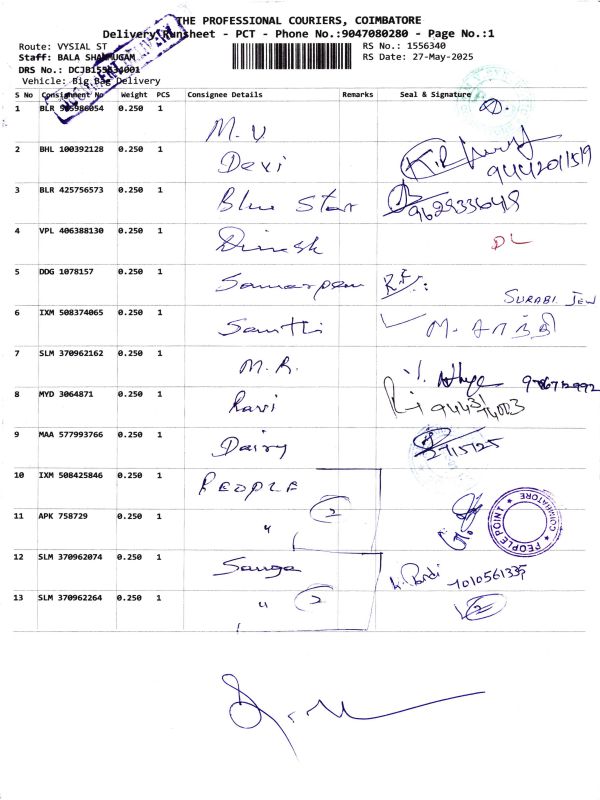 THE PROFESSIONAL COURIERS, COIMBATORE
Delivery Runsheet - PCT - Phone No.:9047080280 - Page No.:1
Route: VYSIAL ST
RS No.: 1556340
Staff: BALA SHANMUGAM
RS Date: 27-May-2025
DRS No.: DCJB155634001
Vehicle: Big Bag Delivery
S No Consignment No Weight PCS Consignee Details Remarks Seal & Signature
1 BLR 0.250 1 M. V
2 BHL 100392128 0.250 1 Devi 9442011519
3 BLR 425756573 0.250 1 Blue Star 9629336048
4 VPL 406388130 0.250 1 Dinesh DL
5 DDG 1078157 0.250 1 Samarpan
SURABI. JEW
6 IXM 508374065 0.250 1 Santhi
7 SLM 370962162 0.250 1 M. R.
8 MYD 3064871 0.250 1 Ravi
9 MAA 577993766 0.250 1 Dairy
10 IXM 508425846 0.250 1 PEOPLE
11 APK 758729 0.250 1 " 2
PEOPLE POINT COIMBATORE
12 SLM 370962074 0.250 1 Sanga 7010561335
13 SLM 370962264 0.250 1 " 2